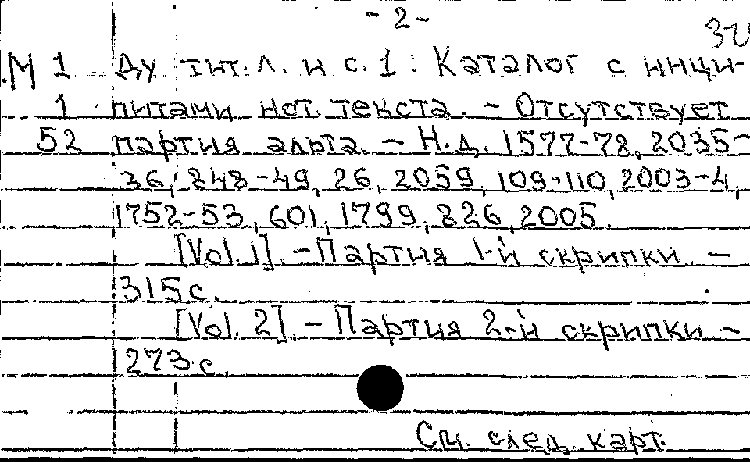 - 2 -
М 1 ду тит. л. и с. 1 : Каталог с инци-
1 питами нот. текста. – Отсутствует
52 партия альта. – Н.д. 1577-78, 2035-
36, 848-49, 26, 2059, 109-110, 2003-4,
1752-53, 601, 1799, 226, 2005.
[Vol. 1]. – Партия 1-й скрипки. –
315 с.
[Vol. 2]. – Партия 2-й скрипки –
273 с.
См. след. карт.